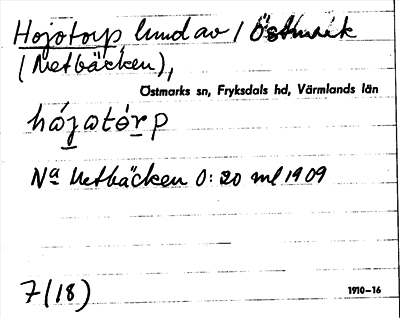 Hojotorp hmd av / Östmark
(Metbäcken),
Östmarks sn, Fryksdals hd, Värmlands län
hájatórp
Na Metbäcken 0:20 ml 1909
7(18)
1910-16